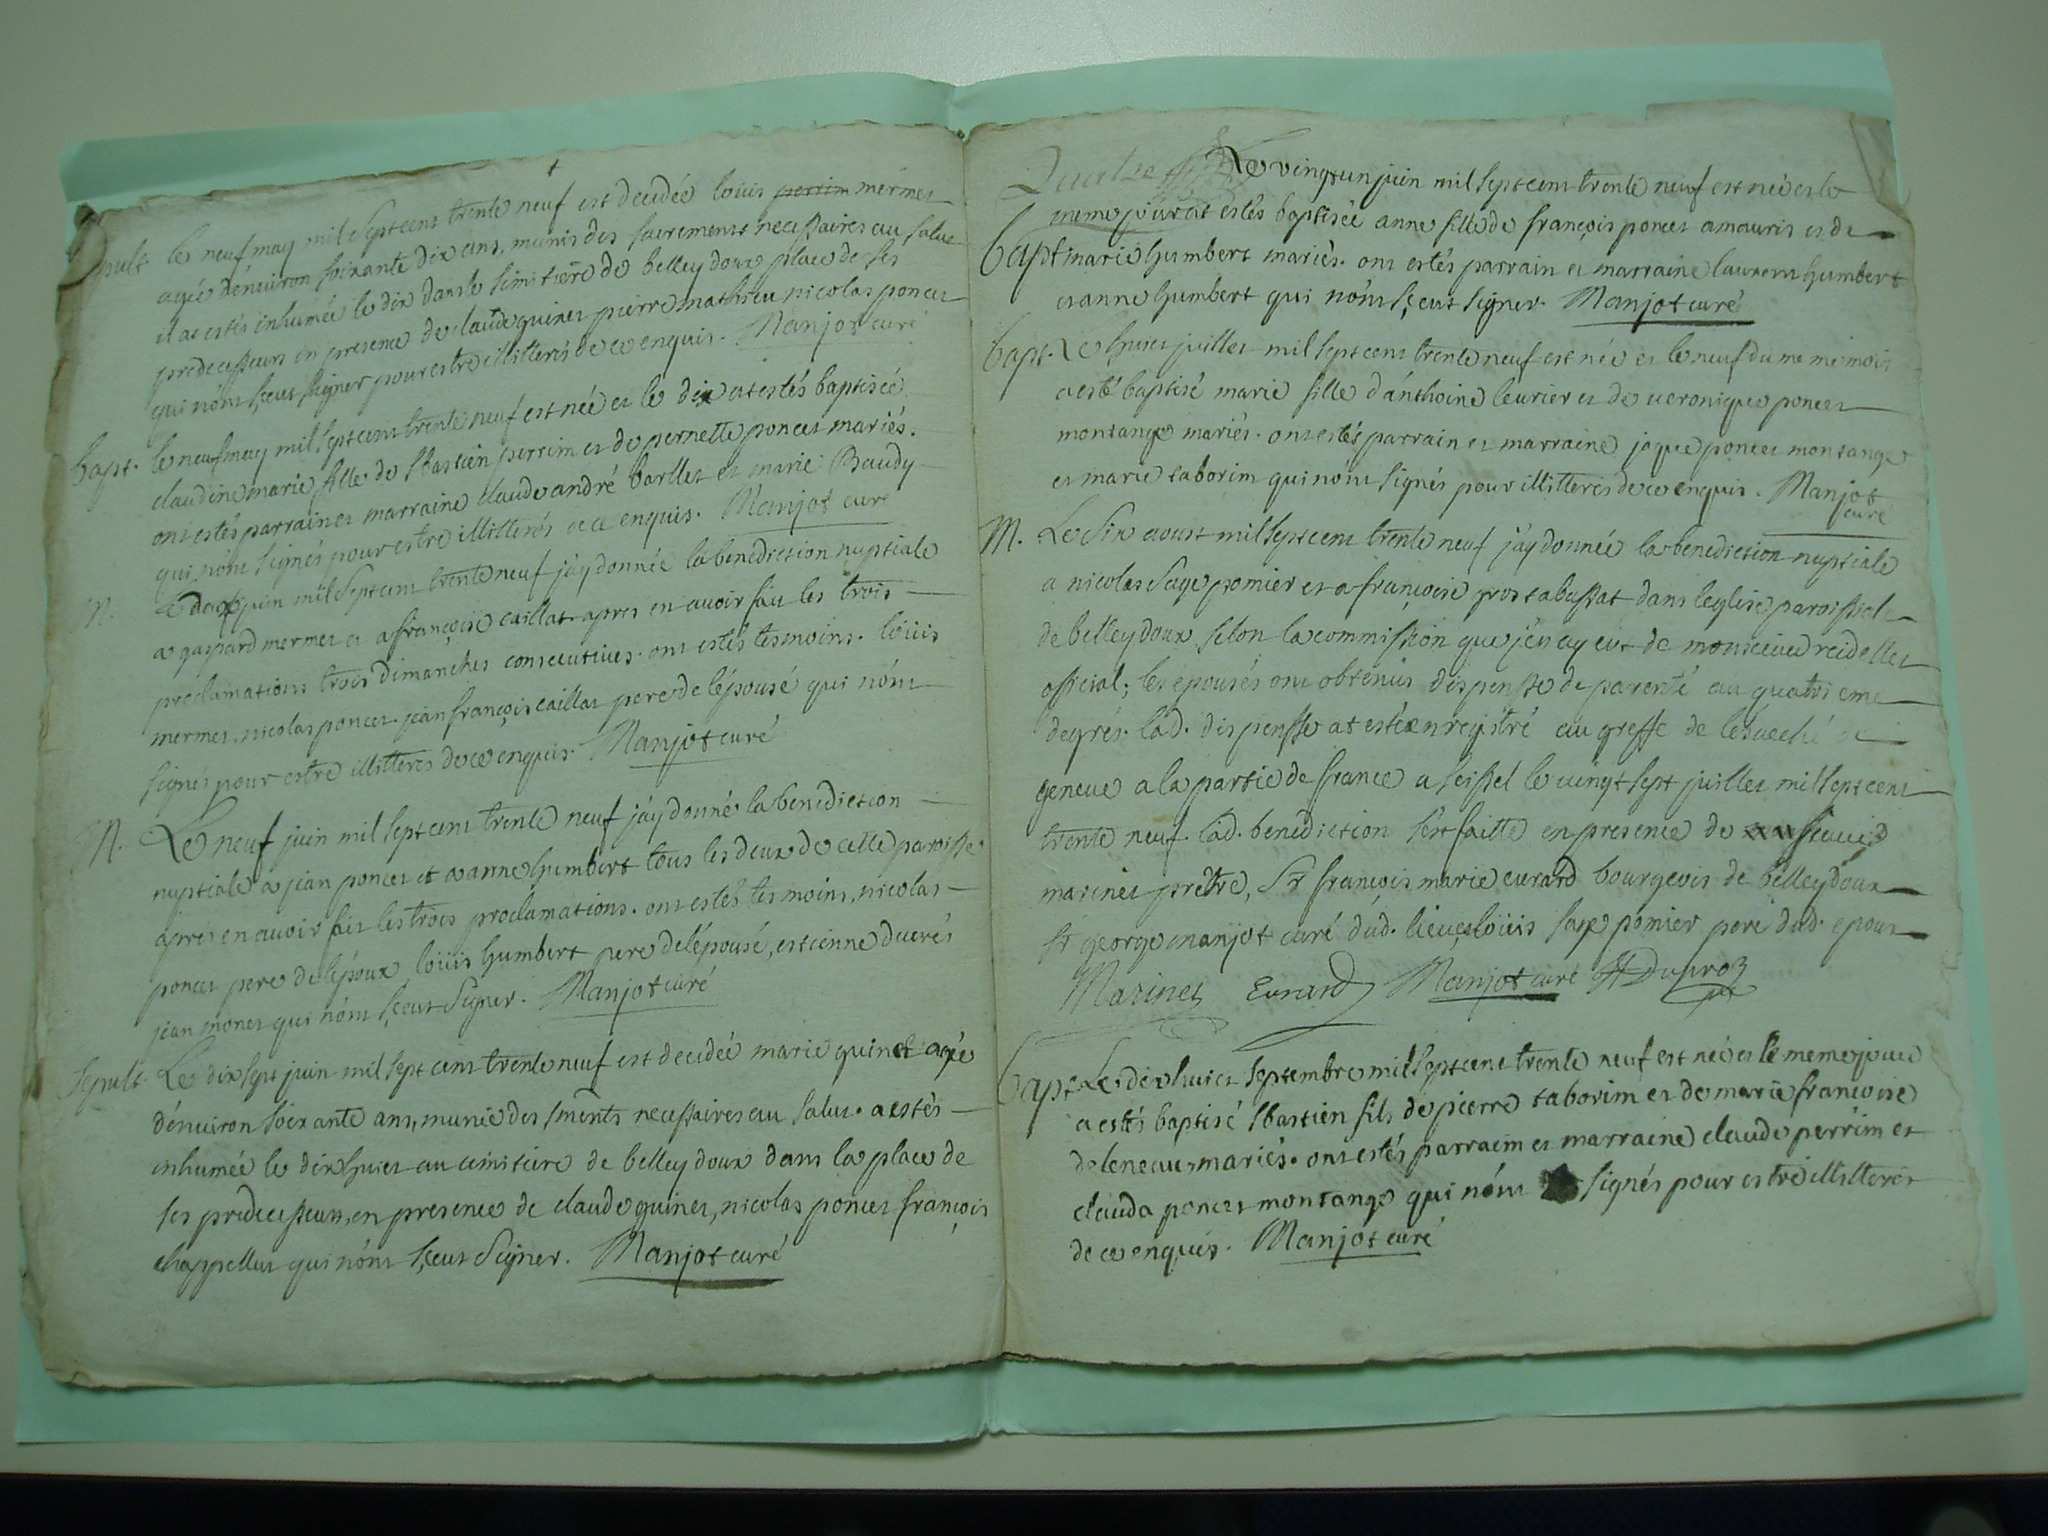 sepult. le neuf may mil sept cent trente neuf est decidée loüis perrim mermet
agée d'enuiron soixante dix ans, munis des sacrements necessaires au salut
il at estés inhumée le dix dans le simitiere de belleydoux place de ses
predecesseurs en presence de claude guinet pierre mathieu nicolas poncet
qui n'ont sçeut signer pour estre illitterés de ce enquis. Manjot curé
bapt. le neuf may mil sept cent trente neuf est née et le dix at estés baptisée
claudine marie fille de sbastien perrim et de pernette poncet mariés.
ont estés parrain et marraine claude andré barllet et marie Baudy
qui n'ont signés pour estre illitterés de ce enquis. Manjot curé
M. Le deux juin mil sept cent trente neuf j'ay donnée la benediction nuptiale
a gaspard mermet et a françoise caillat apres en auoir fait les trois
proclamations trois dimanches consecutiues. ont estés tesmoins. loüis
mermet, nicolas poncet. jean françois caillat pere de l'épouse qui n'ont
signés pour estre illitteres de ce enquis. Manjot curé
M. Le neuf juin mil sept cent trente neuf j'ay donné la benediction
nuptiale a jean poncet et a anne humbert tous les deux de cette paroisse
apres en auoir fait les trois proclamations. ont estés tesmoins, nicolas
poncet pere de l'époux loüis humbert pere de l'épouse, estienne ducrés
jean monet qui n'ont sçeut signer. Manjot curé
Sepult. Le dix sept juin mil sept cent trente neuf est decidée marie guinet agée
d'enuiron soixante ans, munie des sments necessaires au salut. a estés
inhumée le dix huict au cimitiere de belleydoux dans la place de
ses predecesseurs, en presence de claude guinet, nicolas poncet françois
chappellut qui n'ont sçeut signer. Manjot curé
Le vingt un juin mil sept cent trente neuf est née et le
meme jour at estés baptisée anne fille de françois poncet amauris et de
bapt marie humbert mariés. ont estés parrain et marraine laurent humbert
et anne humbert qui n'ont sçeut signer. Manjot curé
bapt. Le huict juillet mil sept cent trente neuf est née et le neuf du meme mois
a esté baptisé marie fille d'anthoine leurier et de ueronique poncet
montange mariés. ont estés parrain et marraine jaque poncet montange
et marie taborim qui n'ont signés pour illitterés de ce enquis. Manjot
curé
M. Le six aoust mil sept cent trente neuf j'ay donnée la benediction nuptiale
a nicolas sage pomier et a françoise gros tabussat dans l'eglise paroissiale
de belleydoux selon la commission que j'en ay eut de monsieur reidellet
official; les epousés ont obtenus dispense de parenté au quatrieme
degrés. lad. dispensse at esté enregistré au greffe de leuesché de
geneue a la partie de france a seissel le uingt sept juillet mil sept cent
trente neuf. lad. benediction s'est faitte en presence de sieur
marinet prêtre, Sr françois marie eurard bourgeois de belleydoux
sr george manjot curé dud. lieu et loüis sage pomier pere dud. epoux
Marinet Eurard Manjot curé
bapt Le dix huict septembre mil sept cent trente neuf est né et le meme jour
a estés baptisé sbastien fils de pierre taborim et de marie françoise
deleneau mariés. ont estés parraim et marraine claude perrim et
clauda poncet montange qui n'ont signés pour estre illitterés
de ce enquis. Manjot curé